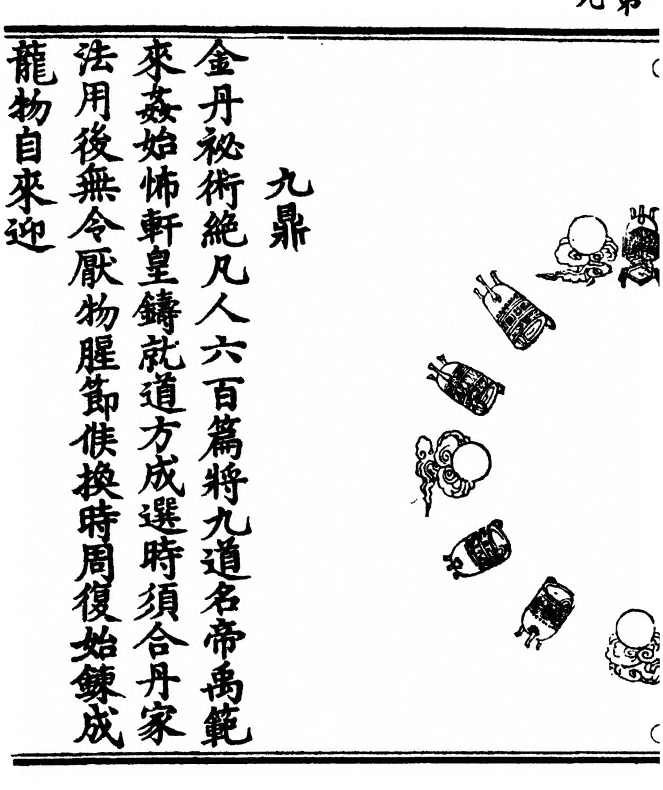 九鼎
金丹祕術絶凡人六百篇將九道名帝禹範
來姦始怖軒皇鑄就道方成選時須合丹家
法用後無令厭物腥節候換時周復始鍊成
龍物自來迎